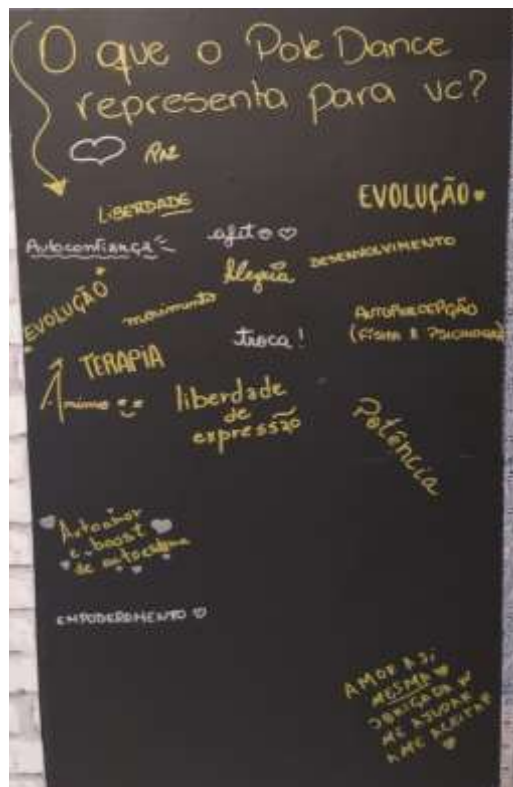 O que o Pole Dance
representa para vc?
Paz
LIBERDADE
EVOLUÇÃO
Autoconfiança
afeto
DESENVOLVIMENTO
Alegria
EVOLUÇÃO
movimento
AUTOPERCEPÇÃO
(FÍSICA E PSICOLÓGICA)
troca!
TERAPIA
Ânimo
liberdade
de
expressão
Potência
Autoamor
e boost
de autoestima
EMPODERAMENTO
AMOR A SI
MESMA
OBRIGADA P/
ME AJUDAR
A ME ACEITAR